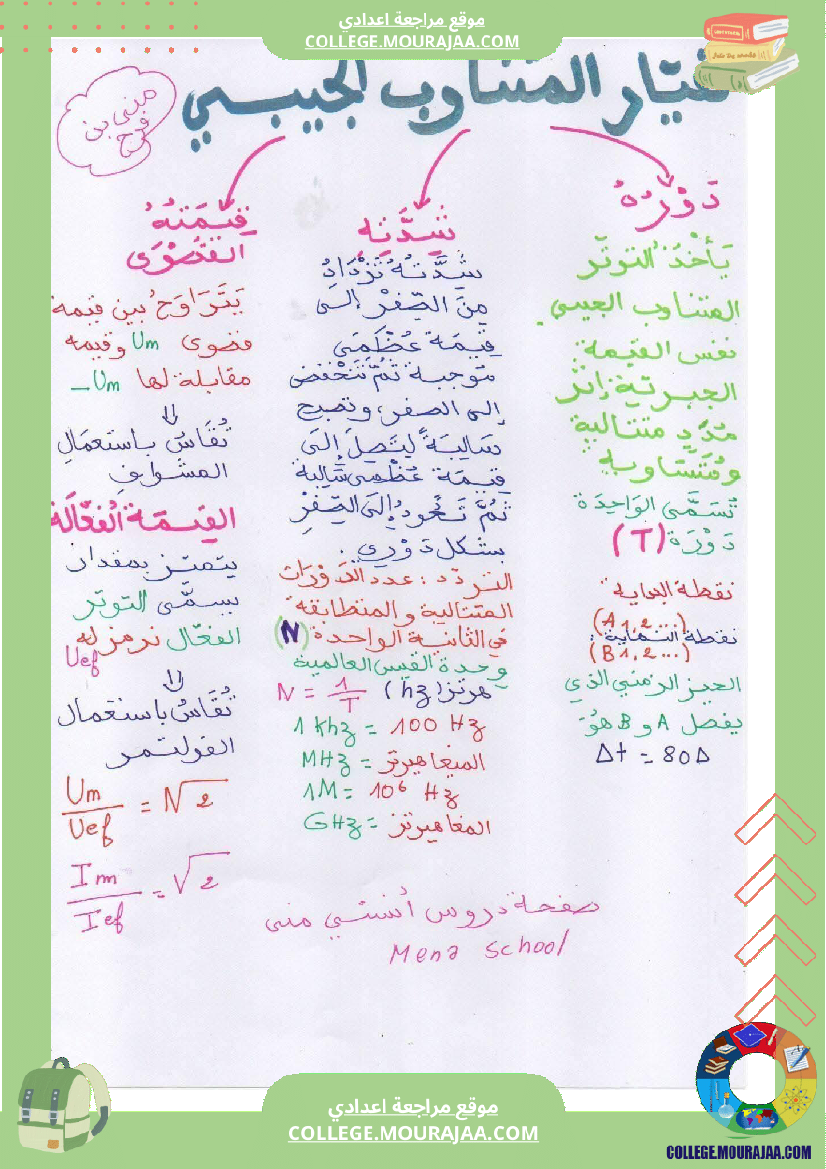 موقع مراجعة اعدادي
COLLEGE.MOURAJAA.COM
التيار المتناوب الجيبي
منى بن
فرج
دَوْرُهُ
يَأْخُذُ التوتّر
المتناوب الجيبي
نفس القيمة
الجبرية إثر
مُدَدٍ متتالية
ومُتَسَاوِية
تُسَمَّى الوَاحِدَة
دَوْرَة (T)
نقطة البداية
(A1,2...)
نقطة النهاية :
(B1,2...)
الحيز الزمني الذي
يفصل A و B هُوَ
Δt = 80Δ
شِدَّتِهِ
شِدَّتُهُ تَزْدَادُ
مِنَ الصِّفْرْ إلى
قِيمَة عُظْمَى
موجبة ثُمَّ تَنْخَفِضُ
إلى الصفر، وتصبح
سَالِبَةً لِتَصِلَ إلَى
قِيمَة عُظْمى سَالبة
ثُمَّ تَعُودُ إلَى الصِّفْرِ
بشكل دَوْرِي.
التردّد : عدد الدَّوْرَات
المتتالية و المتطابقة
في الثانية الواحدة (N)
وحدة القيس العالمية
هرتز (hz) N = 1/T
1 Khz = 100 Hz
الميغاهيرتز = MHz
1M = 10⁶ Hz
المغاهيرتز = GHz
قِيمَتهُ
القُصْوَى
يَتَرَاوَحُ بين قيمة
قصوى Um وقيمة
مقابلة لها -Um
⇓
تُقَاسُ باستعمَالِ
المشواف
القيمَة الفعَّالَة
يتميّز بمقدار
يسمَّى التوتّر
الفعّال نرمز له
Uef
⇓
تُقَاسُ باستعمال
الفولتمتر
Um/Uef = √2
Im/Ief = √2
صفحة دروس أنستي منى
Mena School
موقع مراجعة اعدادي
COLLEGE.MOURAJAA.COM
COLLEGE.MOURAJAA.COM